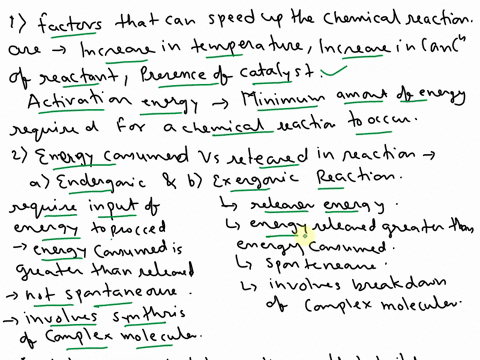 1) factors that can speed up the chemical reaction.
are → Increase in temperature, Increase in Concn
of reactant, Presence of catalyst. ✓
Activation energy → Minimum amount of energy
required for a chemical reaction to occur.
2) Energy consumed Vs released in reaction →
a) Endergonic & b) Exergonic Reaction.
require input of
energy to procced
→ energy consumed is
greater than released
→ not spontaneous.
→ involves synthsis
of complex molecules.
↳ releases energy.
↳ energy released greater than
energy consumed.
↳ spontaneous.
↳ involves breakdown
of complex molecules.